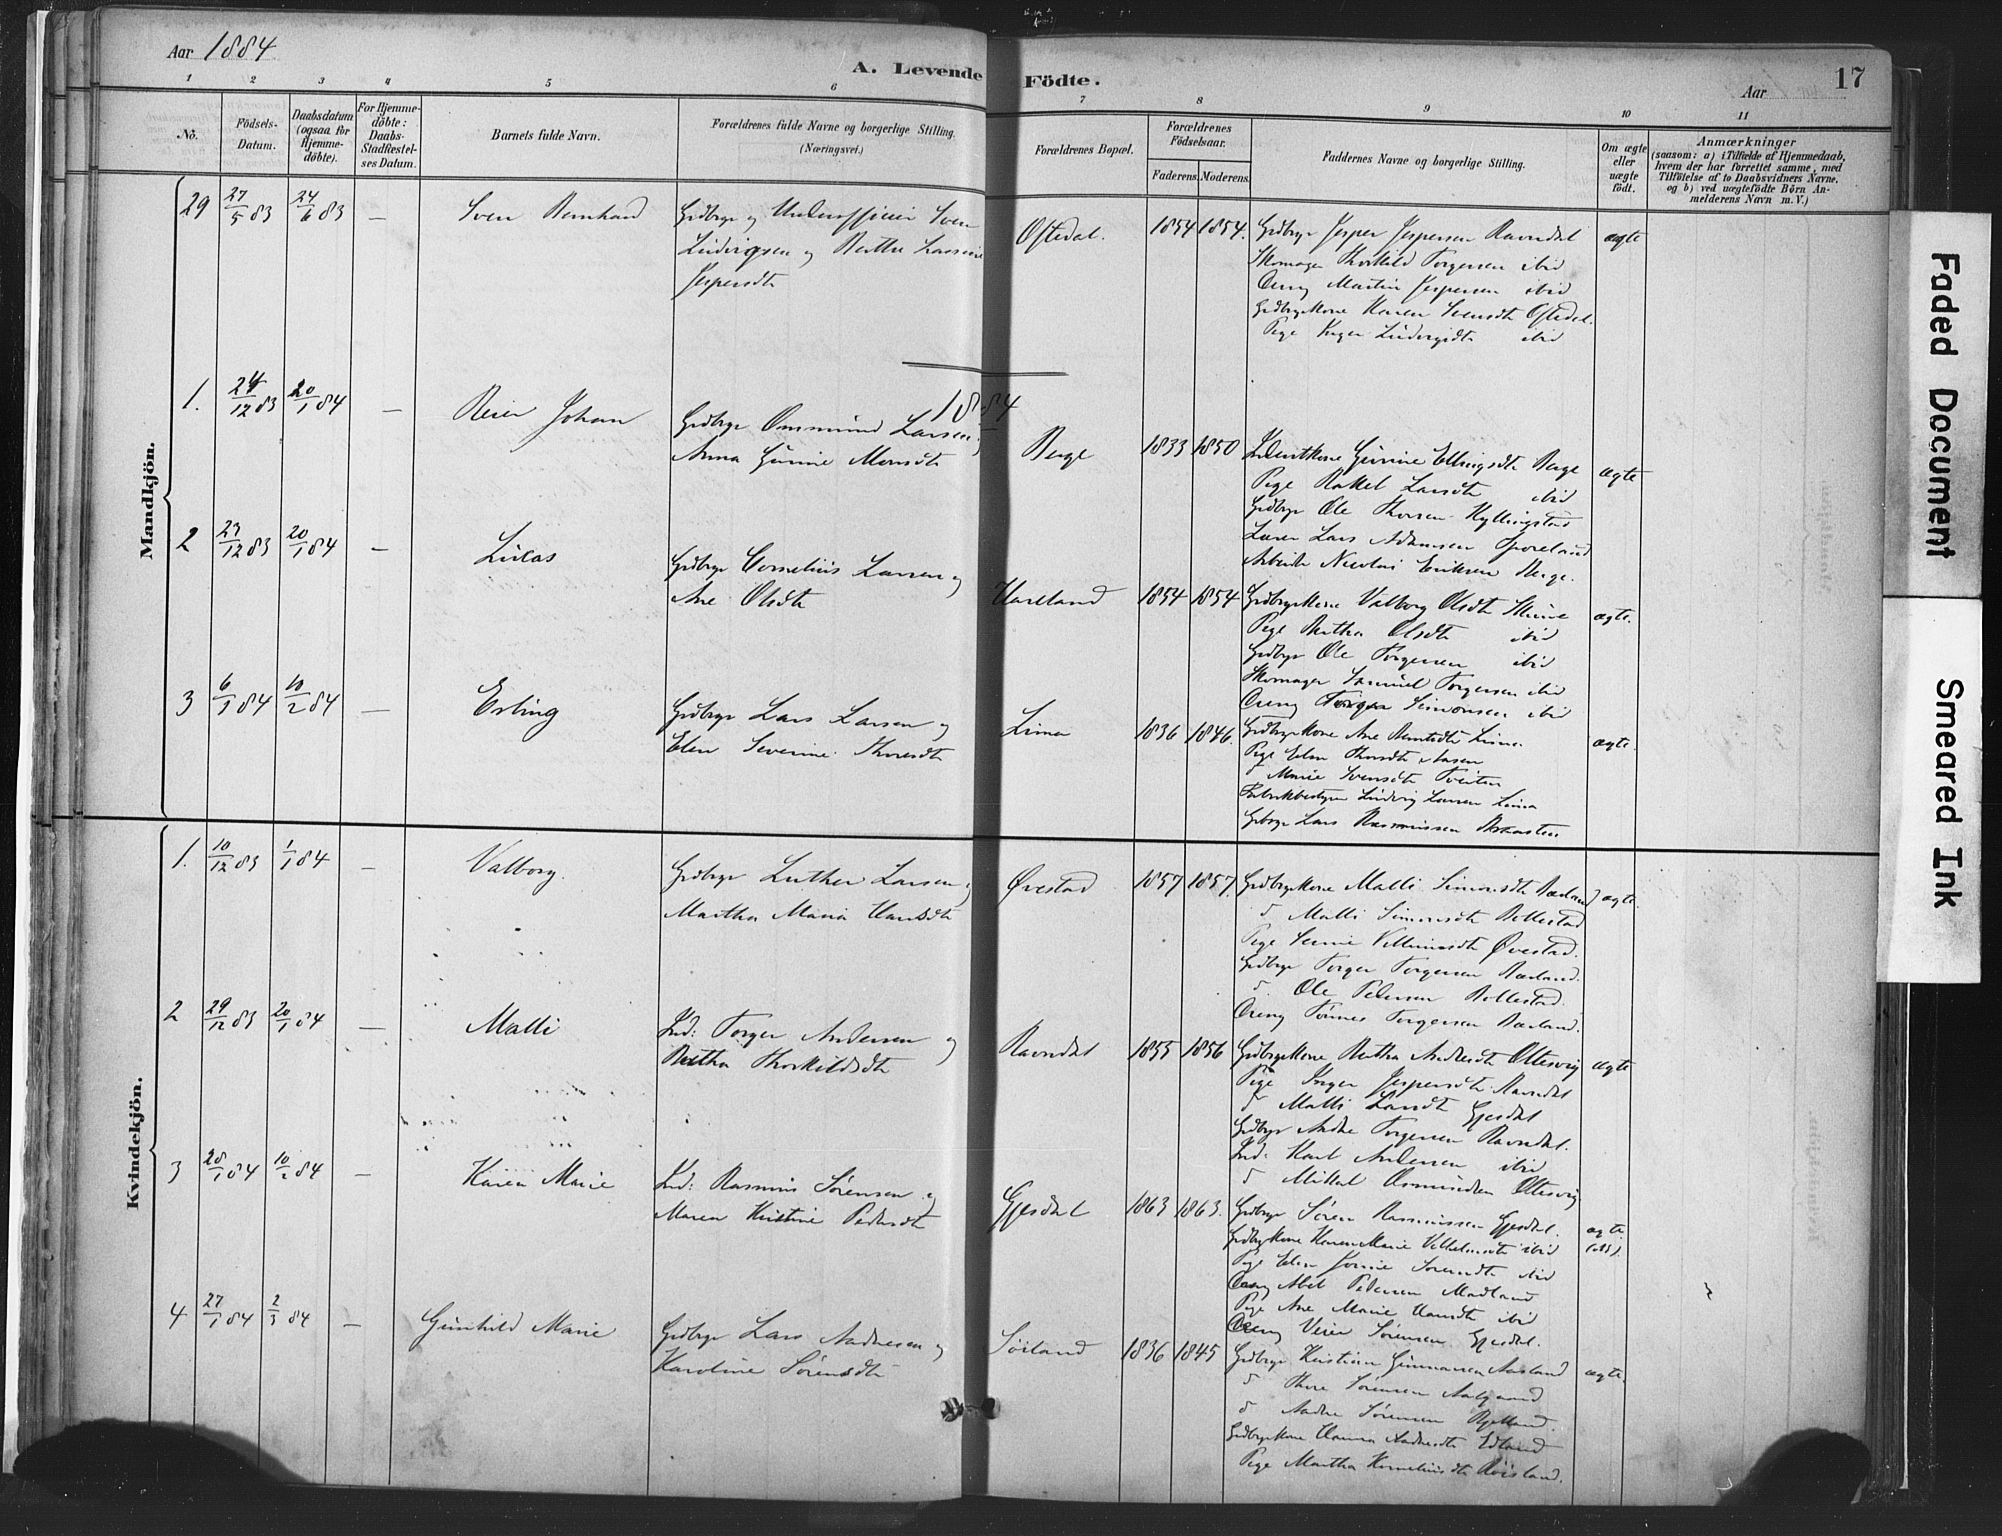 Aar 1884
A. Levende Födte.
Aar
17
1 2 3 4 5 6 7 8 9 10 11
No.
Födsels-Datum.
Daabsdatum (ogsaa for Hjemme-döbte).
For Hjemme-döbte: Daabs-Stadfestel-ses Datum.
Barnets fulde Navn.
Forældrenes fulde Navne og borgerlige Stilling.
(Næringsvei.)
Forældrenes Bopæl.
Forældrenes Födselsaar.
Faderens. Moderens.
Faddernes Navne og borgerlige Stilling.
Om ægte eller uægte födt.
Anmærkninger
(saasom: a) i Tilfælde af Hjemmedaab,
hvem der har forrettet samme, med
Tilföielse af to Daabsvidners Navne,
og b) ved uægtefödte Börn An-
melderens Navn m. V.)
Mandkjön.
29 27/5 83 24/6 83 — Sven Bernhard
Grdbrgr og Underofficier Sven
Ludvigsen og Berthe Lassine
Jespersdt
Oftedal. 1854 1854. ægte
Grdbrgr Jesper Jespersen Ravndal
Skomager Thorkild Torgersen ibid
Ureng Martin Jespersen ibid
Grdbrgrkone Karen Svensdt Oftedal.
Pige Inger Ludvigsdt ibid
1884
1. 24/12 83 20/1 84 — Reier Johan
Grdbrgr Ommund Larsen
Anna Gurine Monsdt
Berge 1833 1850 ægte
Gurine Ellingsdt Berge
Pige Rakel Larsdt ibid
Grdbrgr Ole Thorsen Kyllingstad
Lærer Lars Adamsen Sporeland
Arbeider Nicolai Eriksen Berge.
2 27/12 83 20/1 84 — Lukas
Grdbrgr Cornelius Larsen og
Ane Olsdt
Haaland 1854 1854 ægte.
Grdbrgrkone Valborg Olsdt
Pige Bertha Olsdt ibid
Grdbrgr Ole Torgersen ibid
Skomager Samuel Torgersen ibid
Ureng Torger Simonsen ibid
3 6/1 84 10/2 84 — Erling
Grdbrgr Lars Larsen og
Elen Severine Thoresdt
Lima 1836 1846. ægte.
Grdbrgrkone Ane Lima
Pige Elen Thorsdt Aasen
d Marie Svensdt Tveiten
Fabrikbestyrer Ludvig Larsen Lima
Grdbrgr Lars Rasmussen
Kvindekjön.
1. 10/12 83 1/1 84 — Valborg.
Grdbrgr Luther Larsen og
Martha Maria Hansdt
Øvestad 1857 1857. ægte.
Grdbrgrkone Malli Simonsdt Bærland
d Malli Simonsdt Bollestad
Pige Serine Villumsdt Øvestad.
Grdbrgr Torger Torgersen Bærland.
d. Ole Pedersen Bollestad.
Ureng Tönnes Torgersen Bærland.
2 29/12 83 20/1 84 — Malli
Ind: Torger Andersen og
Bertha Thorkildsdt
Ravndal 1855 1856 ægte
Grdbrgrkone Bertha Andersdt Ollesvig
Pige Inger Jespersdt Ravndal
d Malli Larsdt Gjesdal
Grdbrgr Andre Torgersen Ravndal.
Ind: Karl Andersen ibid
d Mikkel Osmundsen Ollesvig
3 28/1 84 10/2 84 — Karen Marie
Ind: Rasmus Sørensen og
Maren Kristine Pedersdt
Gjesdal 1863 1863. ægte
Grdbrgr Søren Rasmussen Gjesdal.
Grdbrgrkone Karen Marie Vilhelmsdt ibid
Pige Elen Jonine Sørensdt ibid
Ureng Abel Pedersen Madland
Pige Ane Marie Hansdt ibid
Ureng Veier Sørensen Gjesdal.
4 27/1 84 2/3 84 — Gunhild Marie
Grdbrgr Lars Aadnesen og
Karoline Sørensdt
Søiland 1836 1845 ægte.
Grdbrgr Kristian Gunnarsen Aasland
d Thore Sørensen Aalgaard
d Aadne Sørensen
Grdbrgrkone Hanna Aadnesdt Edland
Pige Martha Korneliusdt Røisland.
Faded Document
Smeared Ink